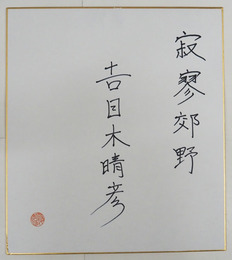 寂寥郊野
吉目木晴彦